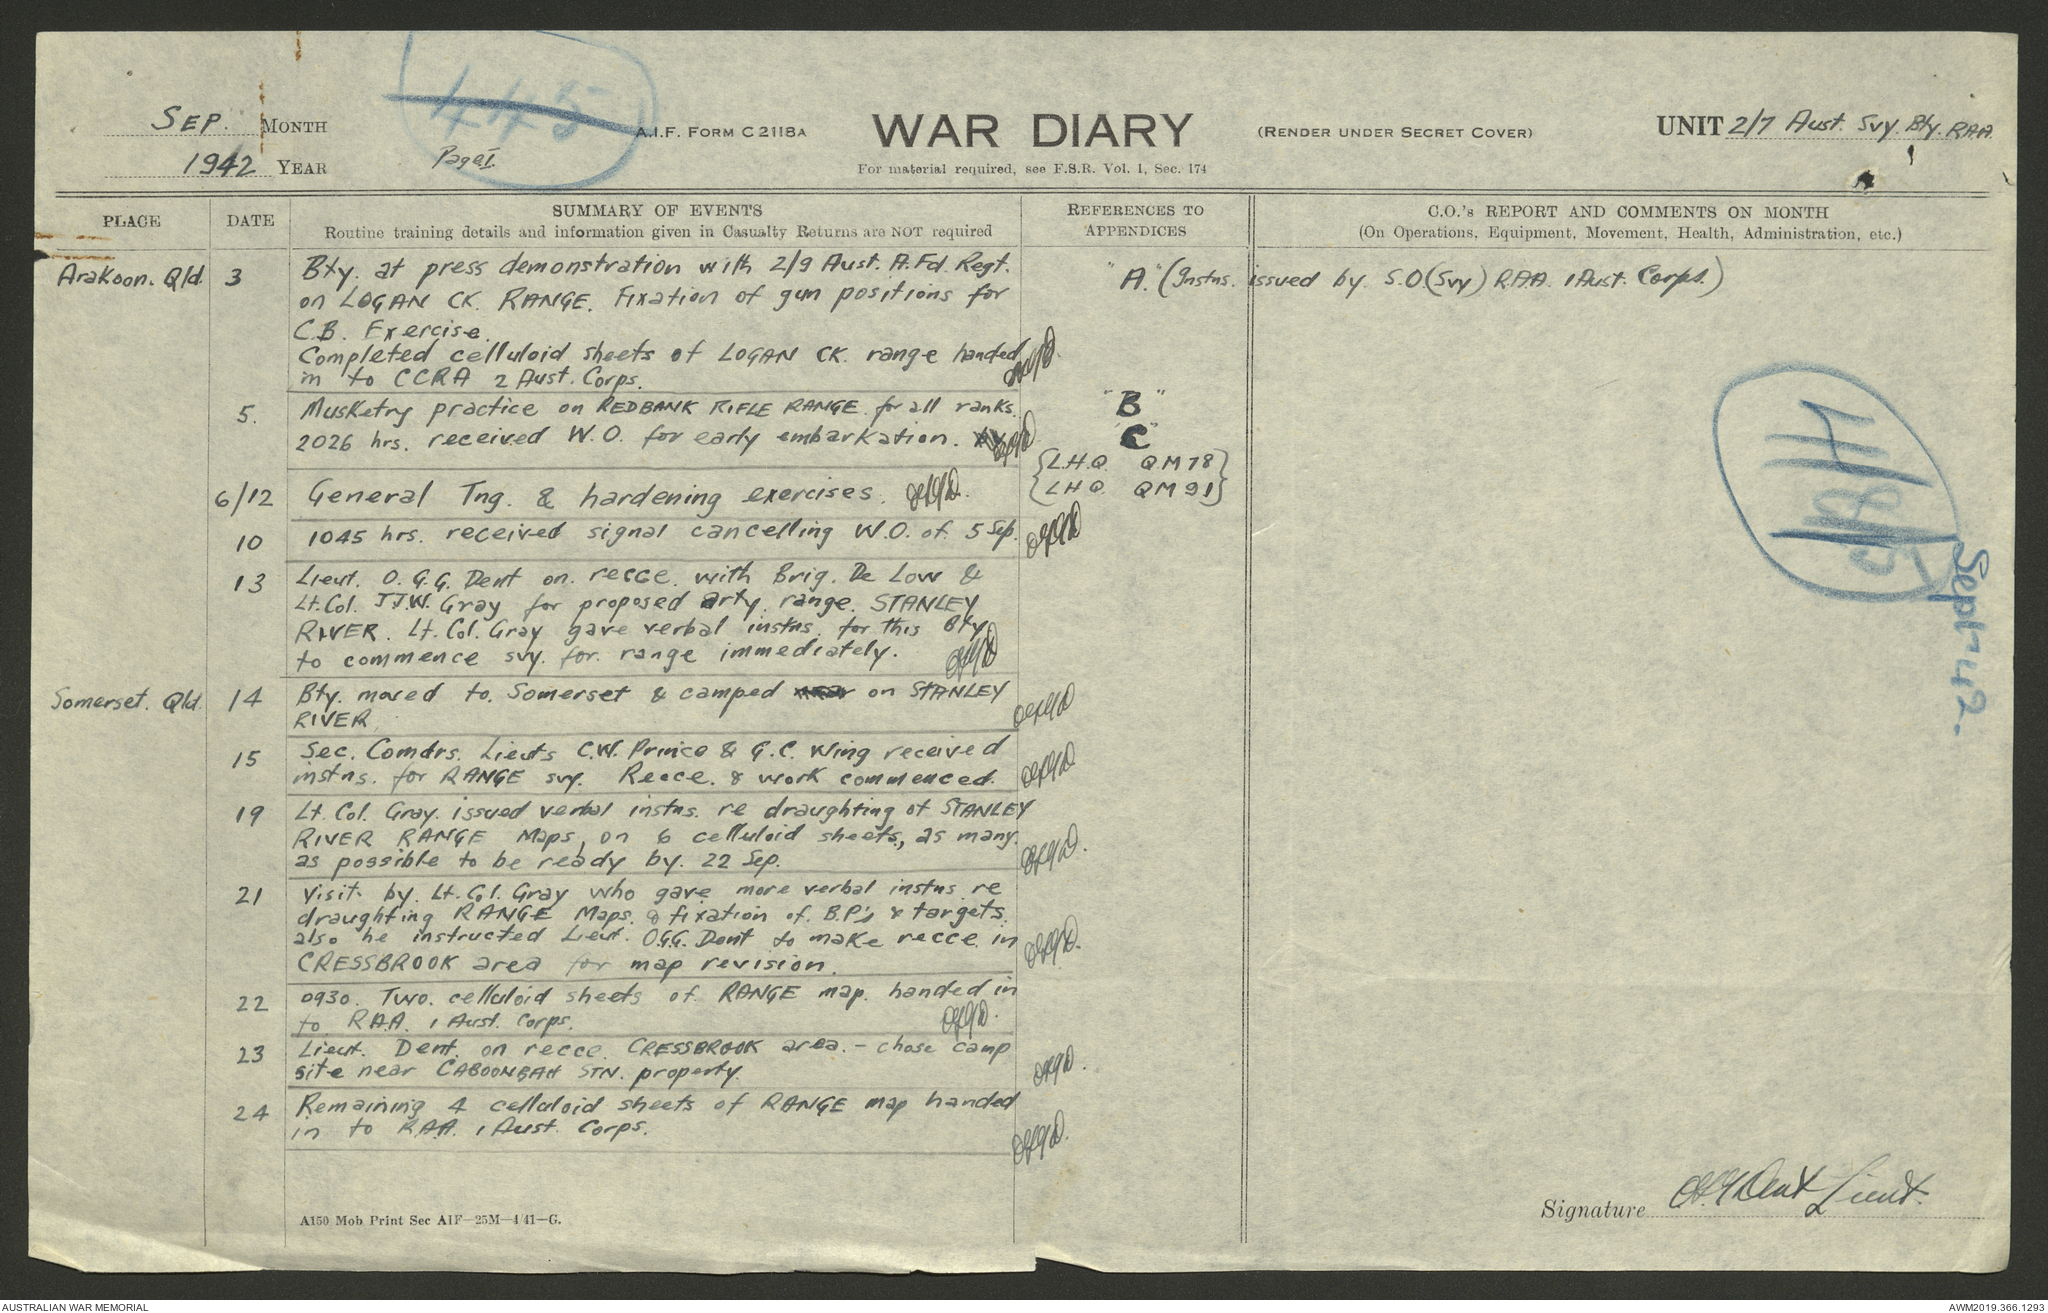 SEP. MONTH
1942 YEAR
445
Page I.
A.I.F. FORM C2118A
WAR DIARY
(RENDER UNDER SECRET COVER)
For material required, see F.S.R. Vol. 1, Sec. 174
UNIT 2/7 Aust. Svy. Bty. RAA.
PLACE
DATE
SUMMARY OF EVENTS
Routine training details and information given in Casualty Returns are NOT required
REFERENCES TO
APPENDICES
C.O.'s REPORT AND COMMENTS ON MONTH
(On Operations, Equipment, Movement, Health, Administration, etc.)
Arakoon. Qld. 3 Bty. at press demonstration with 2/9 Aust. A. Fd. Regt.
on LOGAN CK. RANGE. Fixation of gun positions for
C.B. Exercise.
Completed celluloid sheets of LOGAN CK. range handed
in to CCRA 2 Aust. Corps.
"A." (Instns. issued by S.O (Svy) RAA. 1 Aust. Corps.)
5. Musketry practice on REDBANK RIFLE RANGE for all ranks. "B"
2026 hrs. received W.O. for early embarkation. "C"
{L.H.Q. QM78}
{LHQ. QM91}
6/12 General Tng. & hardening exercises. OGGD.
10 1045 hrs. received signal cancelling W.O. of 5 Sep. OGGD
13 Lieut. O.G.G. Dent on recce. with Brig. De Low &
Lt. Col. J.J.W. Gray for proposed arty. range. STANLEY
RIVER. Lt. Col. Gray gave verbal instns. for this Bty
to commence svy. for range immediately. OGGD
Somerset. Qld. 14 Bty. moved to Somerset & camped on STANLEY
RIVER OGGD
15 Sec. Comdrs. Lieuts C.W. Prince & G.C. Wing received
instns. for RANGE svy. Recce. & work commenced. OGGD
19 Lt. Col. Gray. issued verbal instns. re draughting of STANLEY
RIVER RANGE Maps, on 6 celluloid sheets, as many
as possible to be ready by 22 Sep. OGGD.
21 Visit by Lt. Col. Gray who gave more verbal instns re
draughting RANGE Maps. & fixation of B.P's & targets.
also he instructed Lieut. O.G.G. Dent to make recce in
CRESSBROOK area for map revision. OGGD.
22 0930. Two. celluloid sheets of RANGE map. handed in
to RAA. 1 Aust. Corps. OGGD.
23 Lieut. Dent on recce. CRESSBROOK area. - chose camp
site near CABOONBAH STN. property. OGGD.
24 Remaining 4 celluloid sheets of RANGE map handed
in to RAA. 1 Aust. Corps. OGGD.
485
Sept 42.
A150 Mob Print Sec AIF—25M—4/41—G.
Signature OGGDent Lieut.
AUSTRALIAN WAR MEMORIAL
AWM2019.366.1293